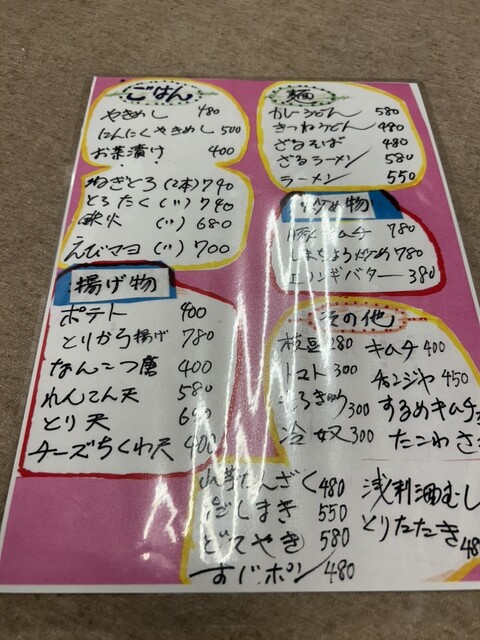 ごはん
やきめし 480
にんにくやきめし 500
お茶漬け 400
ねぎとろ (2本) 740
とろたく (〃) 740
鉄火 (〃) 680
えびマヨ (〃) 700
揚げ物
ポテト 400
とりから揚げ 780
なんこつ唐 400
れんてん天 580
とり天
チーズちくわ天 400
麺
カレーうどん 580
きつねうどん 480
ざるそば 480
ざるラーメン 580
ラーメン 550
炒め物
豚キムチ 780
しまちょう炒め 780
エリンギバター 380
その他
枝豆 280
トマト 300
きゅうり 300
冷奴 300
キムチ 400
チャンジャ 450
するめキムチ
たこわさ
山芋たんざく 480
だしまき 550
どてやき 580
すじポン 480
浅利酒むし
とりたたき 480